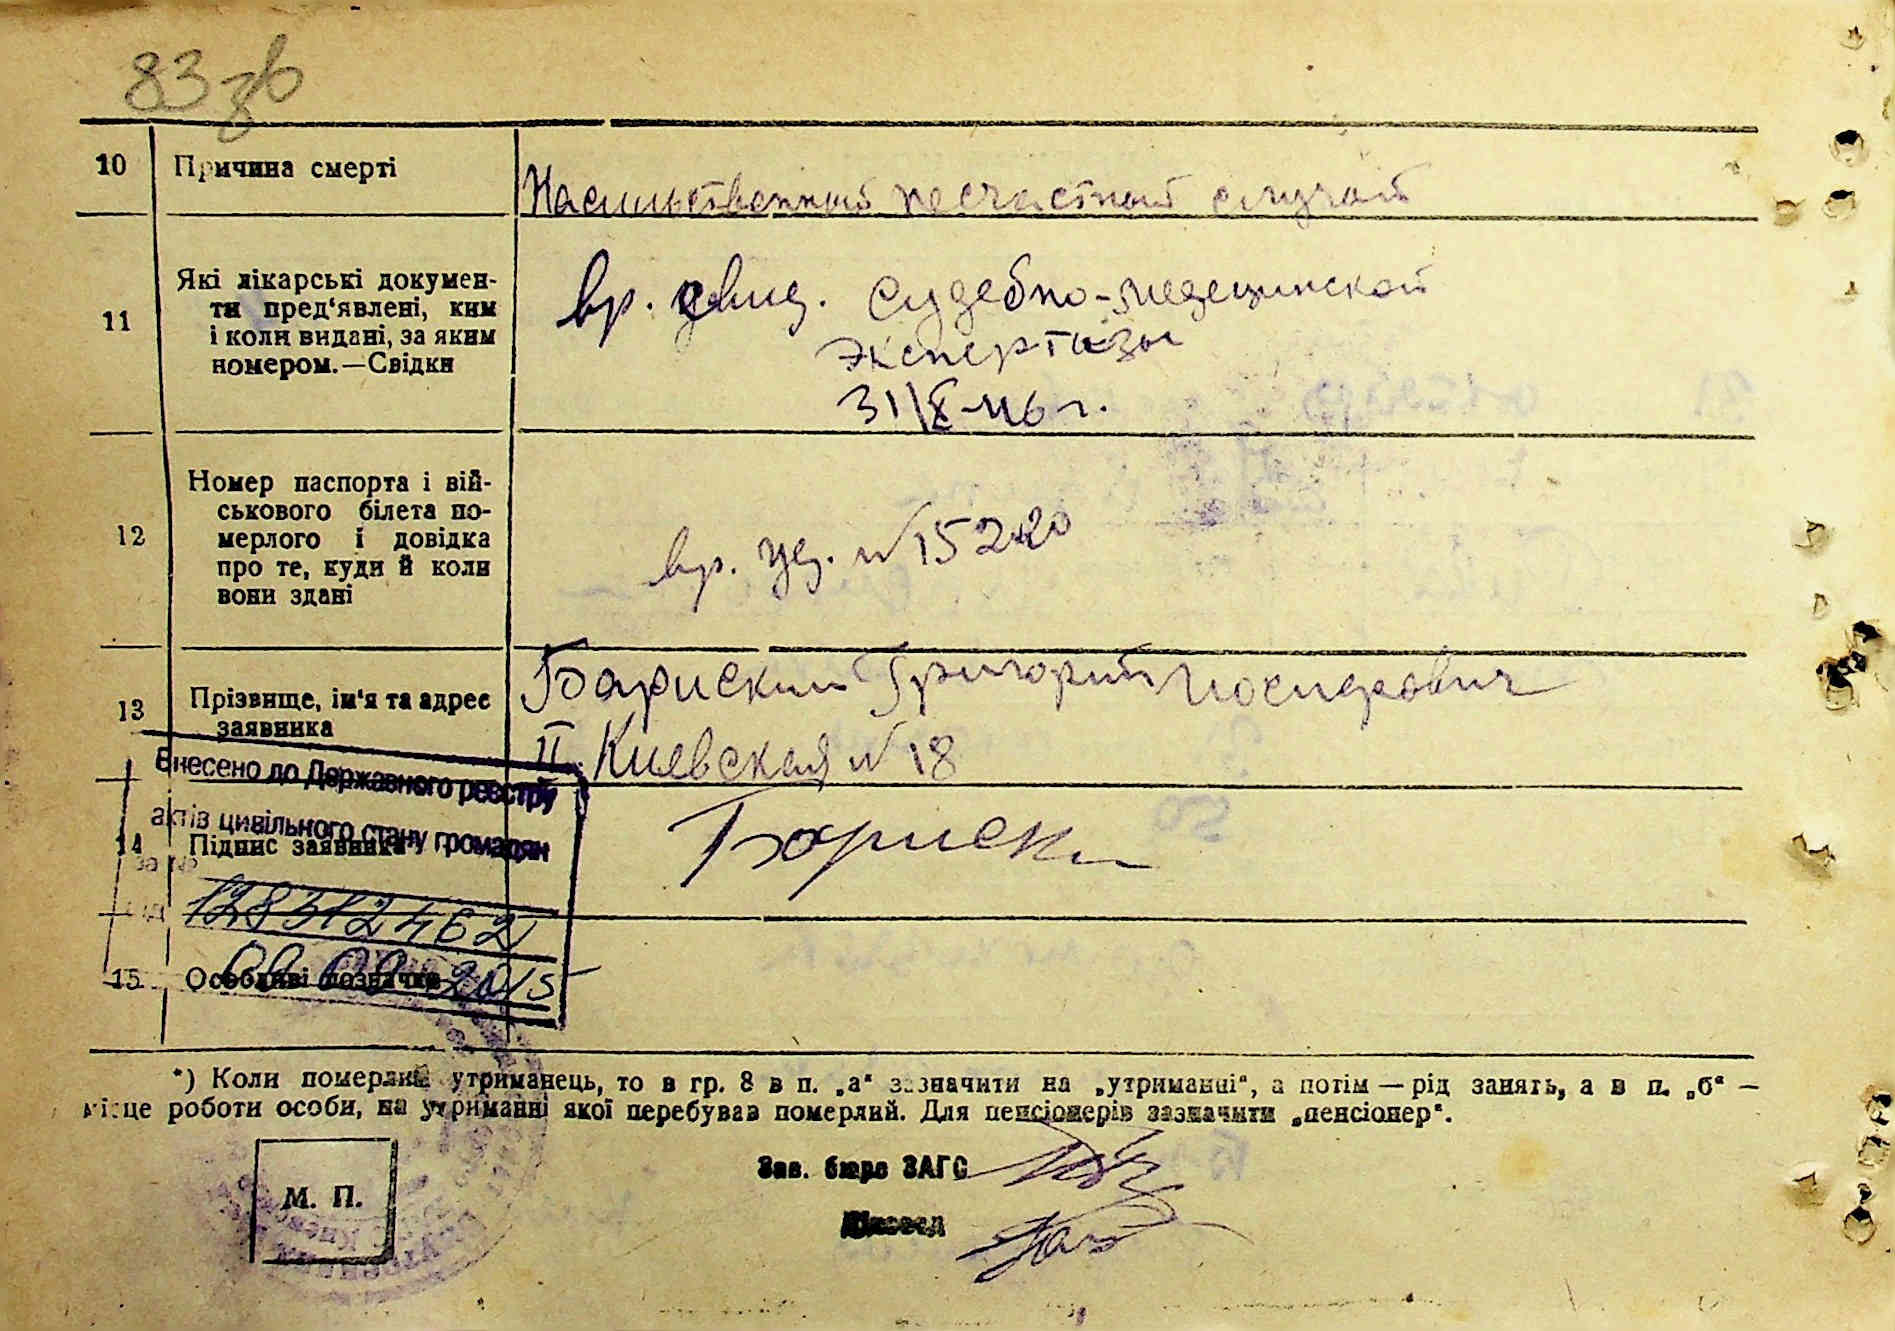 83 зв
10 Причина смерті
Насильственный несчастный случай
11 Які лікарські докумен-
ти пред'явлені, ким
і коли видані, за яким
номером.—Свідки
вр. свид. судебно-медецинской
экспертизы
31/X-46 г.
12 Номер паспорта і вій-
ськового білета по-
мерлого і довідка
про те, куди й коли
вони здані
вр. уд. №
13 Прізвище, ім'я та адрес
заявника
Григорий Иосифович
II. Киевская № 18
Внесено до Державного реєстру
актів цивільного стану громадян
14 Підпис заявника
за №
від
15 Особливі позначки
2015
*) Коли померлий утриманець, то в гр. 8 в п. „а“ зазначити на „утриманні“, а потім — рід занять, а в п. „б“ —
місце роботи особи, на утриманні якої перебував померлий. Для пенсіонерів зазначити „пенсіонер“.
М. П.
Зав. бюро ЗАГС